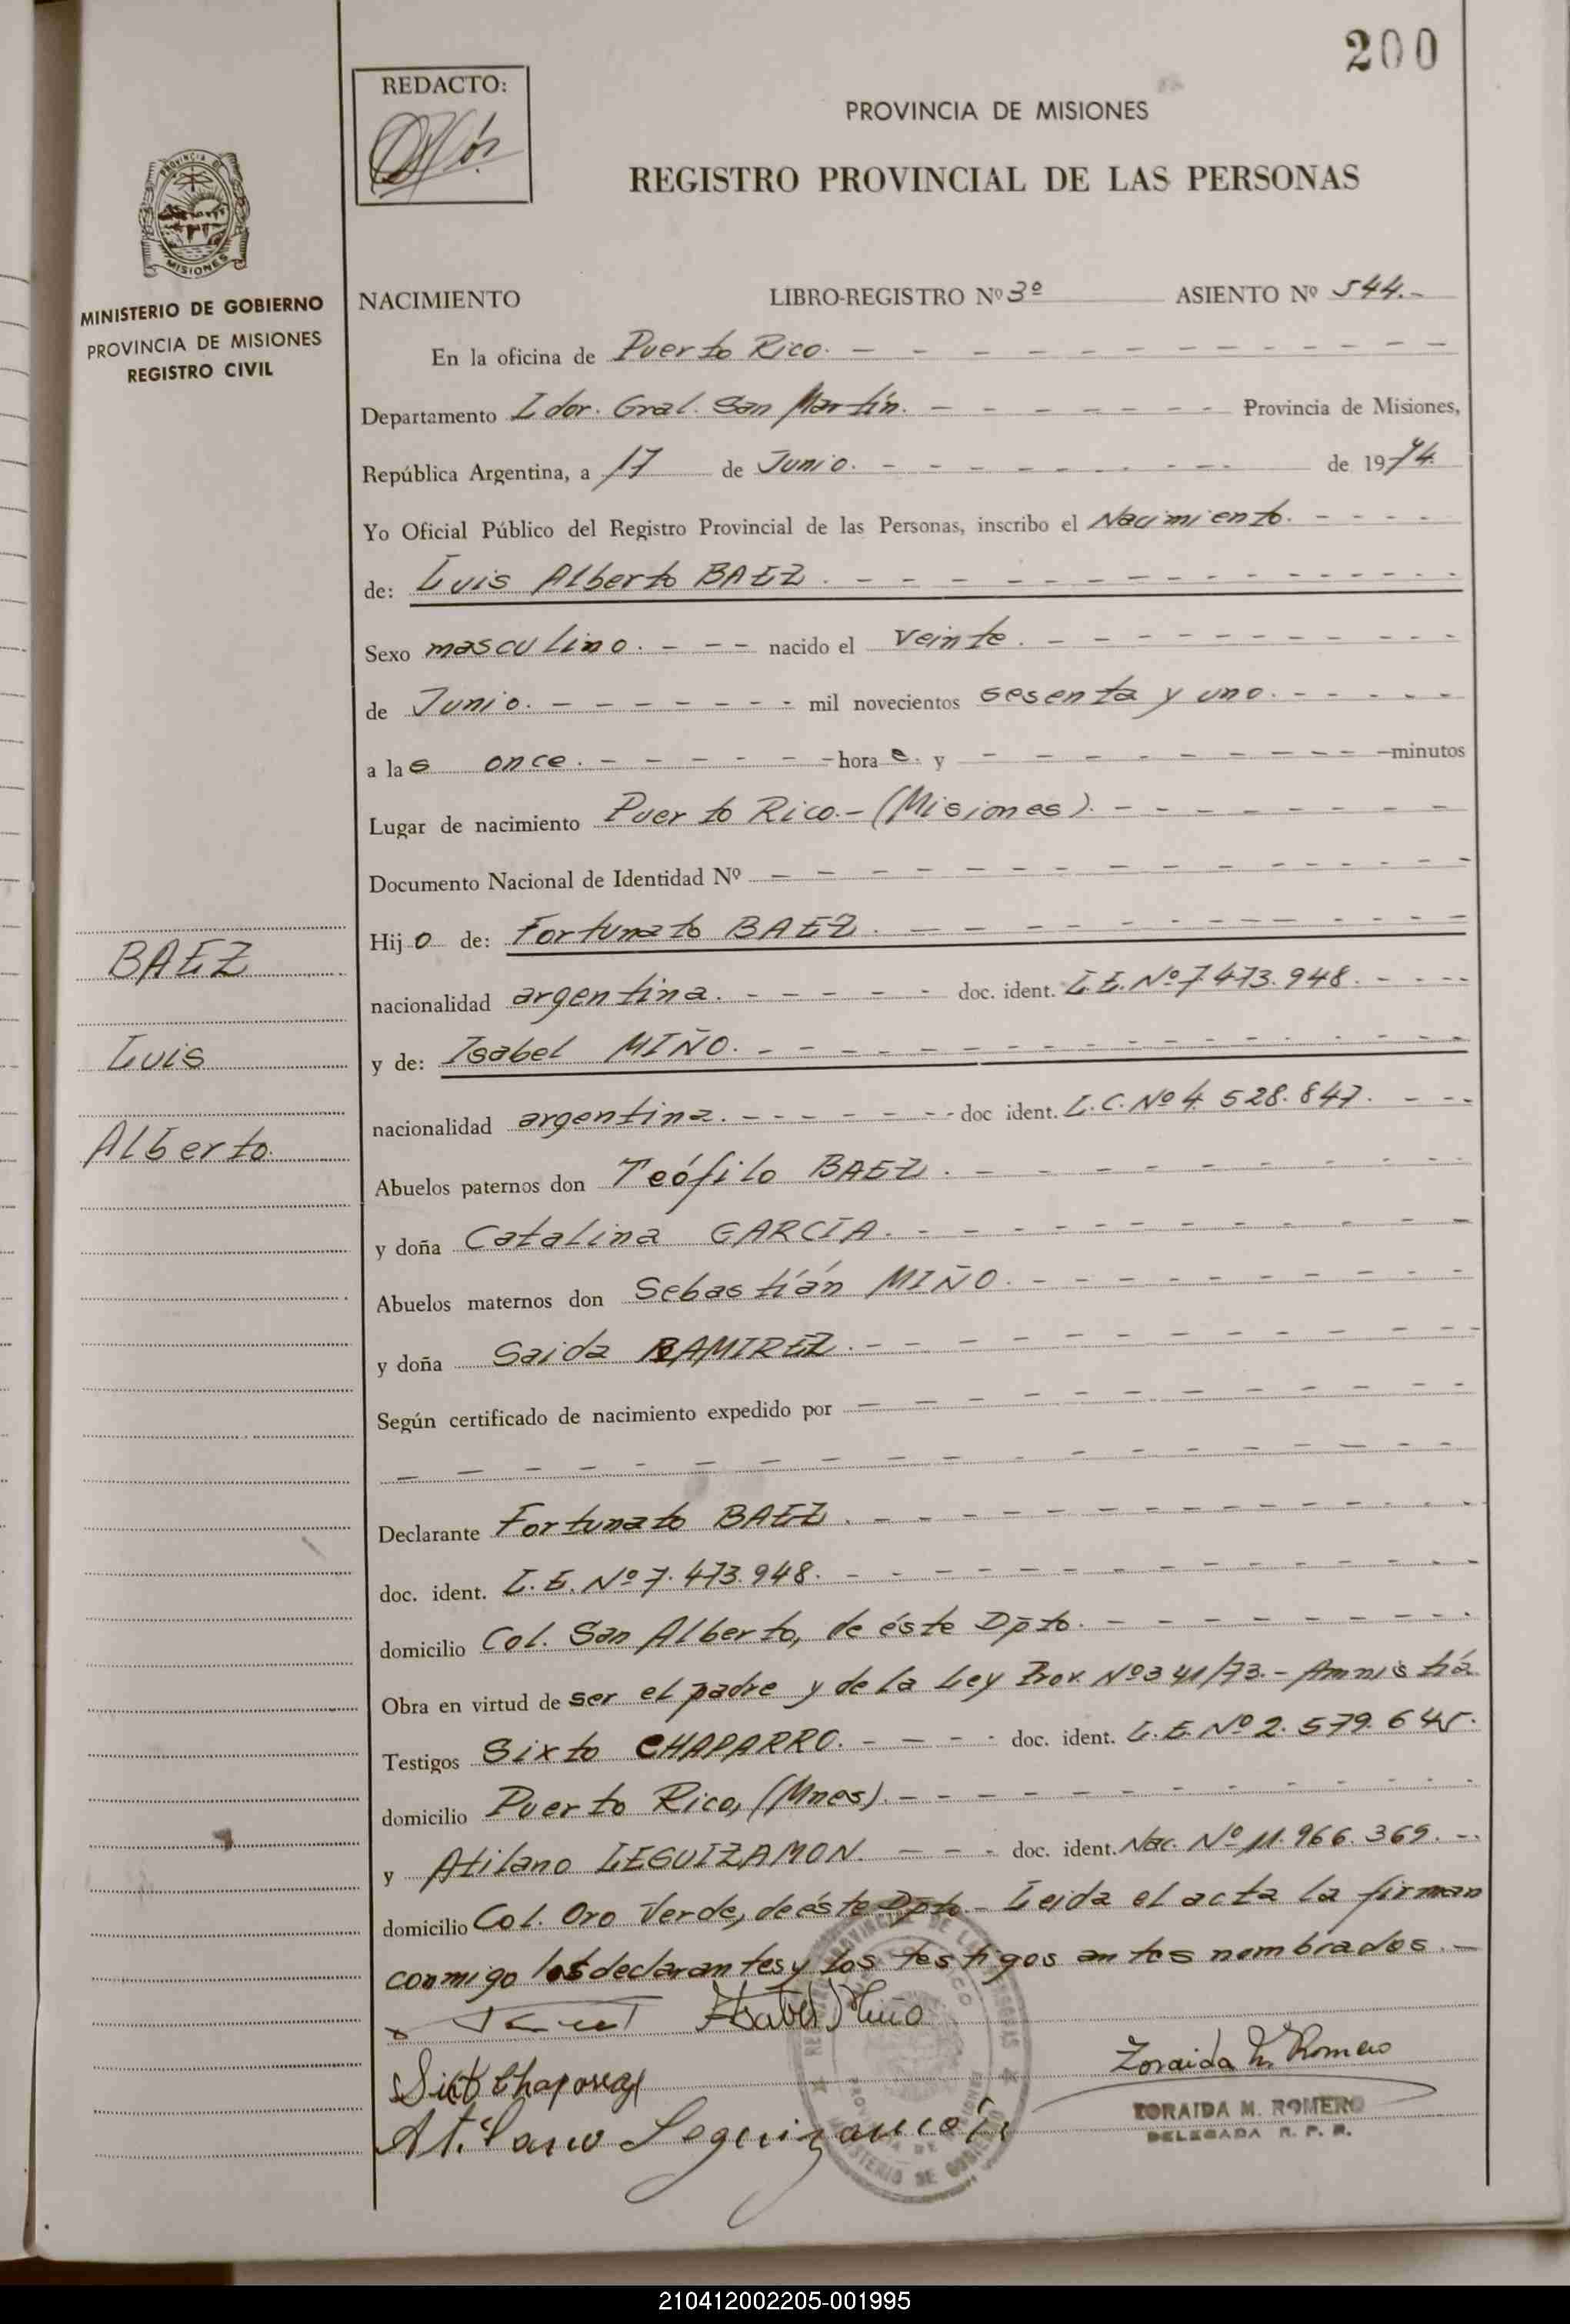 200
REDACTO:
PROVINCIA DE MISIONES
REGISTRO PROVINCIAL DE LAS PERSONAS
PROVINCIA DE
MISIONES
MINISTERIO DE GOBIERNO
PROVINCIA DE MISIONES
REGISTRO CIVIL
NACIMIENTO LIBRO-REGISTRO Nº 3º ASIENTO Nº 544.-
En la oficina de Puerto Rico. - - - - - - - - - - - -
Departamento Ldor. Gral. San Martín. - - - - - - - Provincia de Misiones,
República Argentina, a 17 de Junio. - - - - - - - - de 1974
Yo Oficial Público del Registro Provincial de las Personas, inscribo el Nacimiento. - - - -
de: Luis Alberto BAEZ. - - - - - - - - - - - - -
Sexo masculino. - - - nacido el veinte. - - - - - - - - - -
de Junio. - - - - - - - mil novecientos sesenta y uno. - - - - -
a las once. - - - - - - hora s. y - - - - - - - - - minutos
Lugar de nacimiento Puerto Rico.- (Misiones). - - - - - - - -
Documento Nacional de Identidad Nº - - - - - - - - - - - - - -
Hijo de: Fortunato BAEZ. - - - - - - - - - - -
nacionalidad argentina. - - - - - doc. ident. L.E. Nº 7.473.948. - - - -
y de: Isabel MIÑO. - - - - - - - - - - - - - - -
nacionalidad argentina. - - - - - - doc ident. L.C. Nº 4.528.847. - - -
Abuelos paternos don Teófilo BAEZ. - - - - - - - - - -
y doña Catalina GARCÍA. - - - - - - - - - - - - -
Abuelos maternos don Sebastián MIÑO. - - - - - - - - - -
y doña Saida RAMIREZ. - - - - - - - - - - - - -
Según certificado de nacimiento expedido por - - - - - - - - - - - -
- - - - - - - - - - - - - - - - - - -
Declarante Fortunato BAEZ. - - - - - - - - - - - -
doc. ident. L.E. Nº 7.473.948. - - - - - - - - - - - -
domicilio Col. San Alberto, de éste Dpto. - - - - - - - -
Obra en virtud de ser el padre y de la Ley Prov. Nº 341/73.- Amnistía
Testigos Sixto CHAPARRO. - - - - doc. ident. L.E. Nº 2.579.645.
domicilio Puerto Rico, (Mnes). - - - - - - - - - - - -
y Atilano LEGUIZAMON. - - - doc. ident. Nac. Nº 11.966.369. - -
domicilio Col. Oro Verde, de éste Dpto.- Leida el acta la firman
conmigo los declarantes y los testigos antes nombrados. -
BAEZ
Luis
Alberto.
Isabel Miño
Sixto Chaparro
Zoraida M. Romero
Atilano Leguizamón
ZORAIDA M. ROMERO
DELEGADA R. P. P.
210412002205-001995